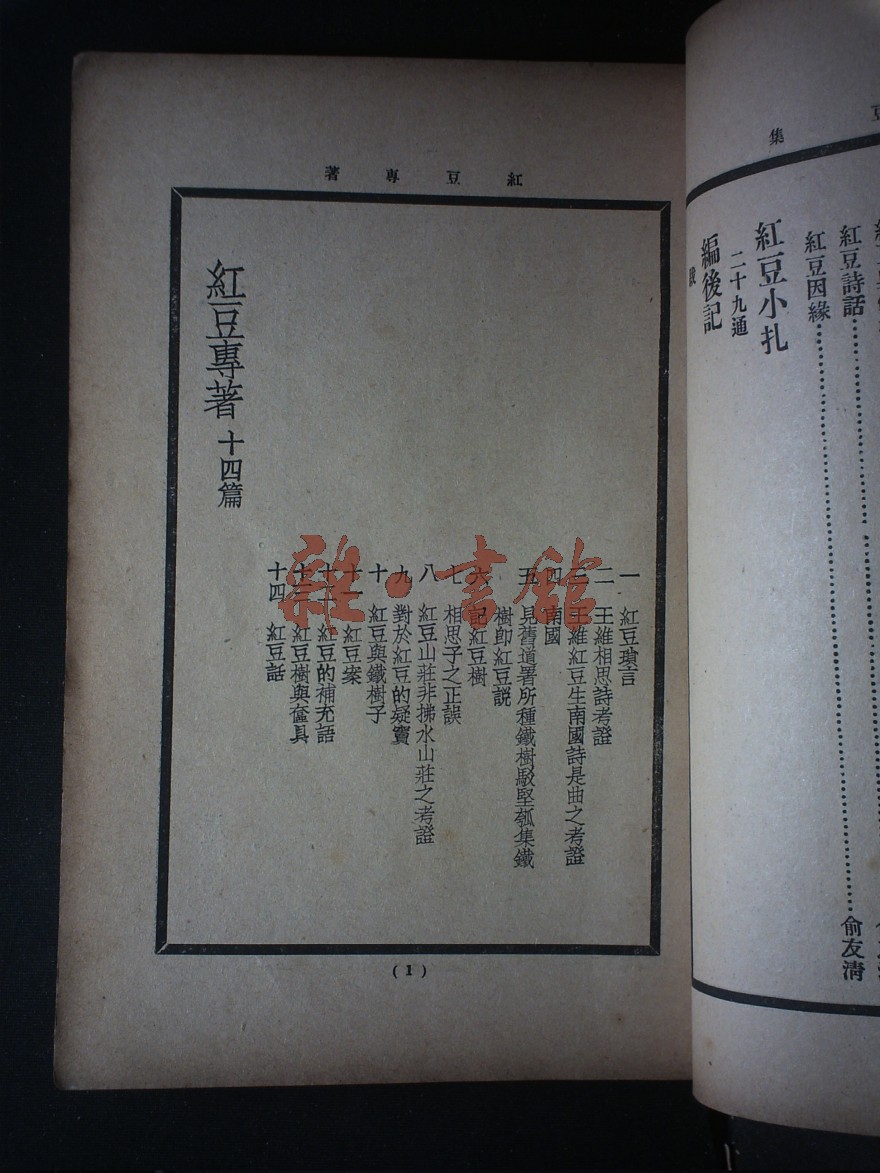 豆集
紅豆詩話……俞友清
紅豆因緣……
紅豆小扎
二十九通
編後記
跋
紅豆專著
一 紅豆瑣言
二 王維相思詩考證
三 王維紅豆生南國詩是曲之考證
四 南國
五 見舊道署所種鐵樹駁堅瓠集鐵
樹卽紅豆說
六 記紅豆樹
七 相思子之正誤
八 紅豆山莊非拂水山莊之考證
九 對於紅豆的疑竇
十 紅豆與鐵樹子
十一 紅豆案
十二 紅豆的補充語
十三 紅豆樹與奩具
十四 紅豆話
紅豆專著 十四篇
(1)
雜·書館